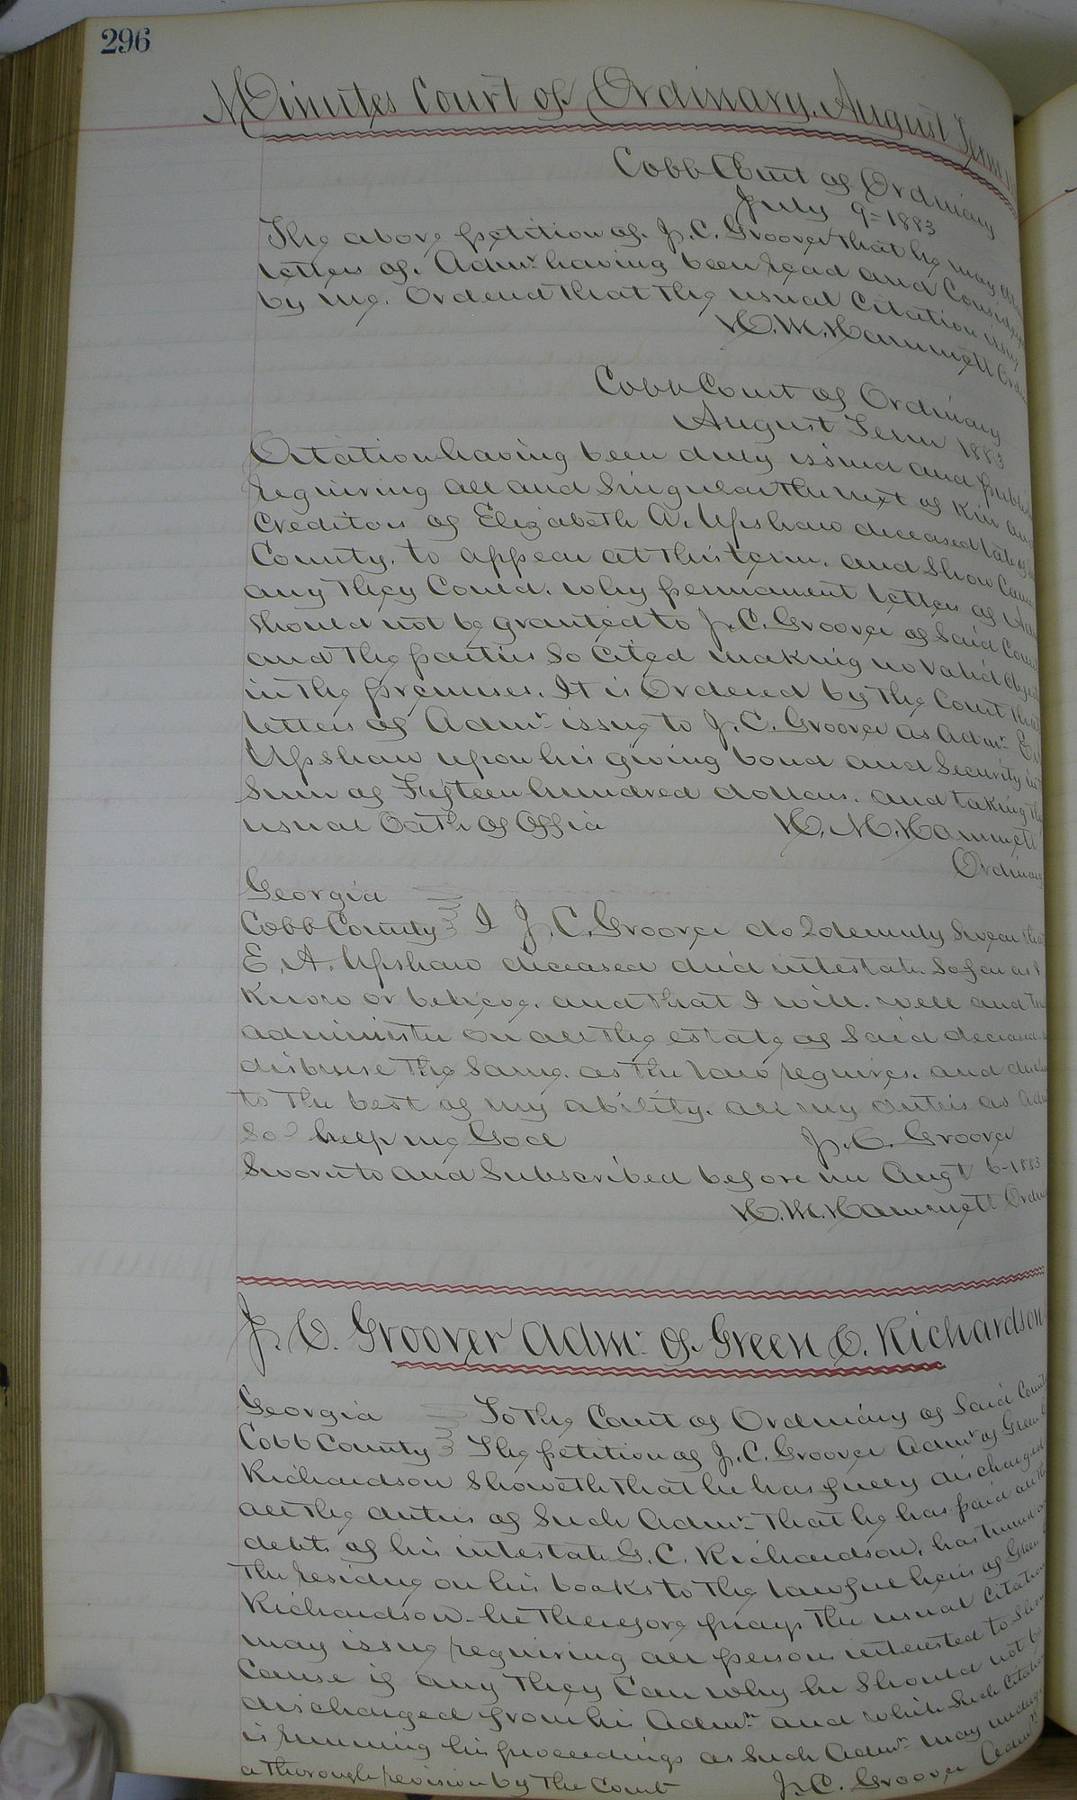 296
Minutes Court of Ordinary, August Term
Cobb Court of Ordinary
July 9= 1883
The above petition of J. C. Groover that he may
letters of Admr having been read and
by me. Ordered that the usual Citation
H. M. Hammett
Cobb Court of Ordinary
August Term 1883
Citation having been duly issued and
requiring all and Singular the next of Kin and
Creditors of Elizabeth A. Upshaw deceased late of
County, to appear at this term, and Show Cause
any they Could, why permanent letters of
should not be granted to J. C. Groover of Said
and the parties So Cited making no Valid
in the premises, It is Ordered by the Court that
letters of Admr issue to J. C. Groover as Admr E.
Upshaw upon his giving bond and Security in
Sum of Fifteen hundred dollars, and taking the
usual Oath of Office H. M. Hammett
Ordinary
Georgia
Cobb County I J. C. Groover do Solemnly Swear that
E. A. Upshaw deceased died intestate So far as I
Know or believe, and that I will, well and
administer on all the estate of Said deceased
disburse the Same, as the law requires, and
to the best of my ability, all my duties as
So help me God J. C. Groover
Sworn to and Subscribed before me Augt 6-1883
H. M. Hammett
J. C. Groover Admr of Green C. Richardson
Georgia To the Court of Ordinary of Said
Cobb County The petition of J. C. Groover Admr of Green
Richardson Showeth that he has fully discharged
all the duties of Such Admr that he has paid all the
debts of his intestate G. C. Richardson, has turned
the residue on his books to the lawful heirs of Green
Richardson he therefore prays the usual Citation
may issue requiring all persons interested to Show
Cause if any they Can why he Should not be
discharged from his Admn and while Such Citation
is running his proceedings as Such Admr may undergo
a thorough revision by the Court J. C. Groover Admr